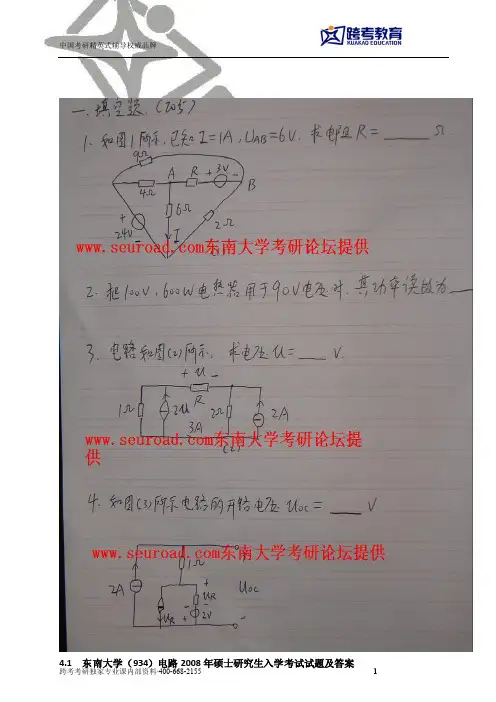 中国考研精英式辅导权威品牌
跨考教育
KUAKAO EDUCATION
一、填空题 (20分)
1. 如图1所示, 已知 I=1A, UAB=6V. 求电阻 R= ____ Ω
9Ω
A R + 3V -
4Ω B
6Ω
2Ω
+ 24V - I
www.seuroad.com东南大学考研论坛提供
2. 把100V, 600W电热器用于90V电压时. 其功率读数为__
3. 电路如图(2)所示. 求电压 U= ____ V.
+ u -
R
1Ω 2u 2Ω 2A
3A
(2)
www.seuroad.com东南大学考研论坛提
供
4. 如图(3)所示电路的开路电压 Uoc = ____ V
www.seuroad.com东南大学考研论坛提供
1Ω
2A + Uoc
UR UR -
+ 2V -
4.1 东南大学（934）电路 2008 年硕士研究生入学考试试题及答案
跨考考研独家专业课内部资料 400-668-2155 1